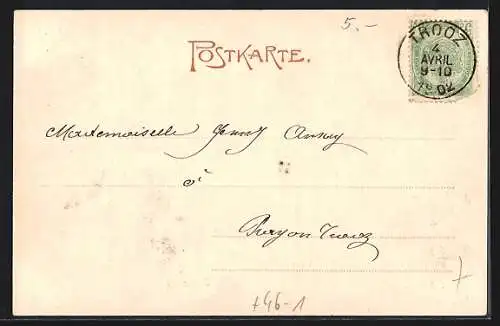 5.-
POSTKARTE.
TROOZ
4
AVRIL
9-10
1902
Mademoiselle Jenny
à
Prayon Trooz
+46-1